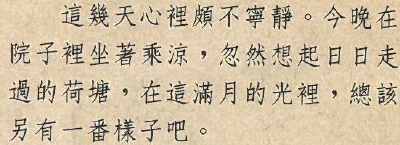 這幾天心裡頗不寧靜。今晚在
院子裡坐著乘涼，忽然想起日日走
過的荷塘，在這滿月的光裡，總該
另有一番樣子吧。